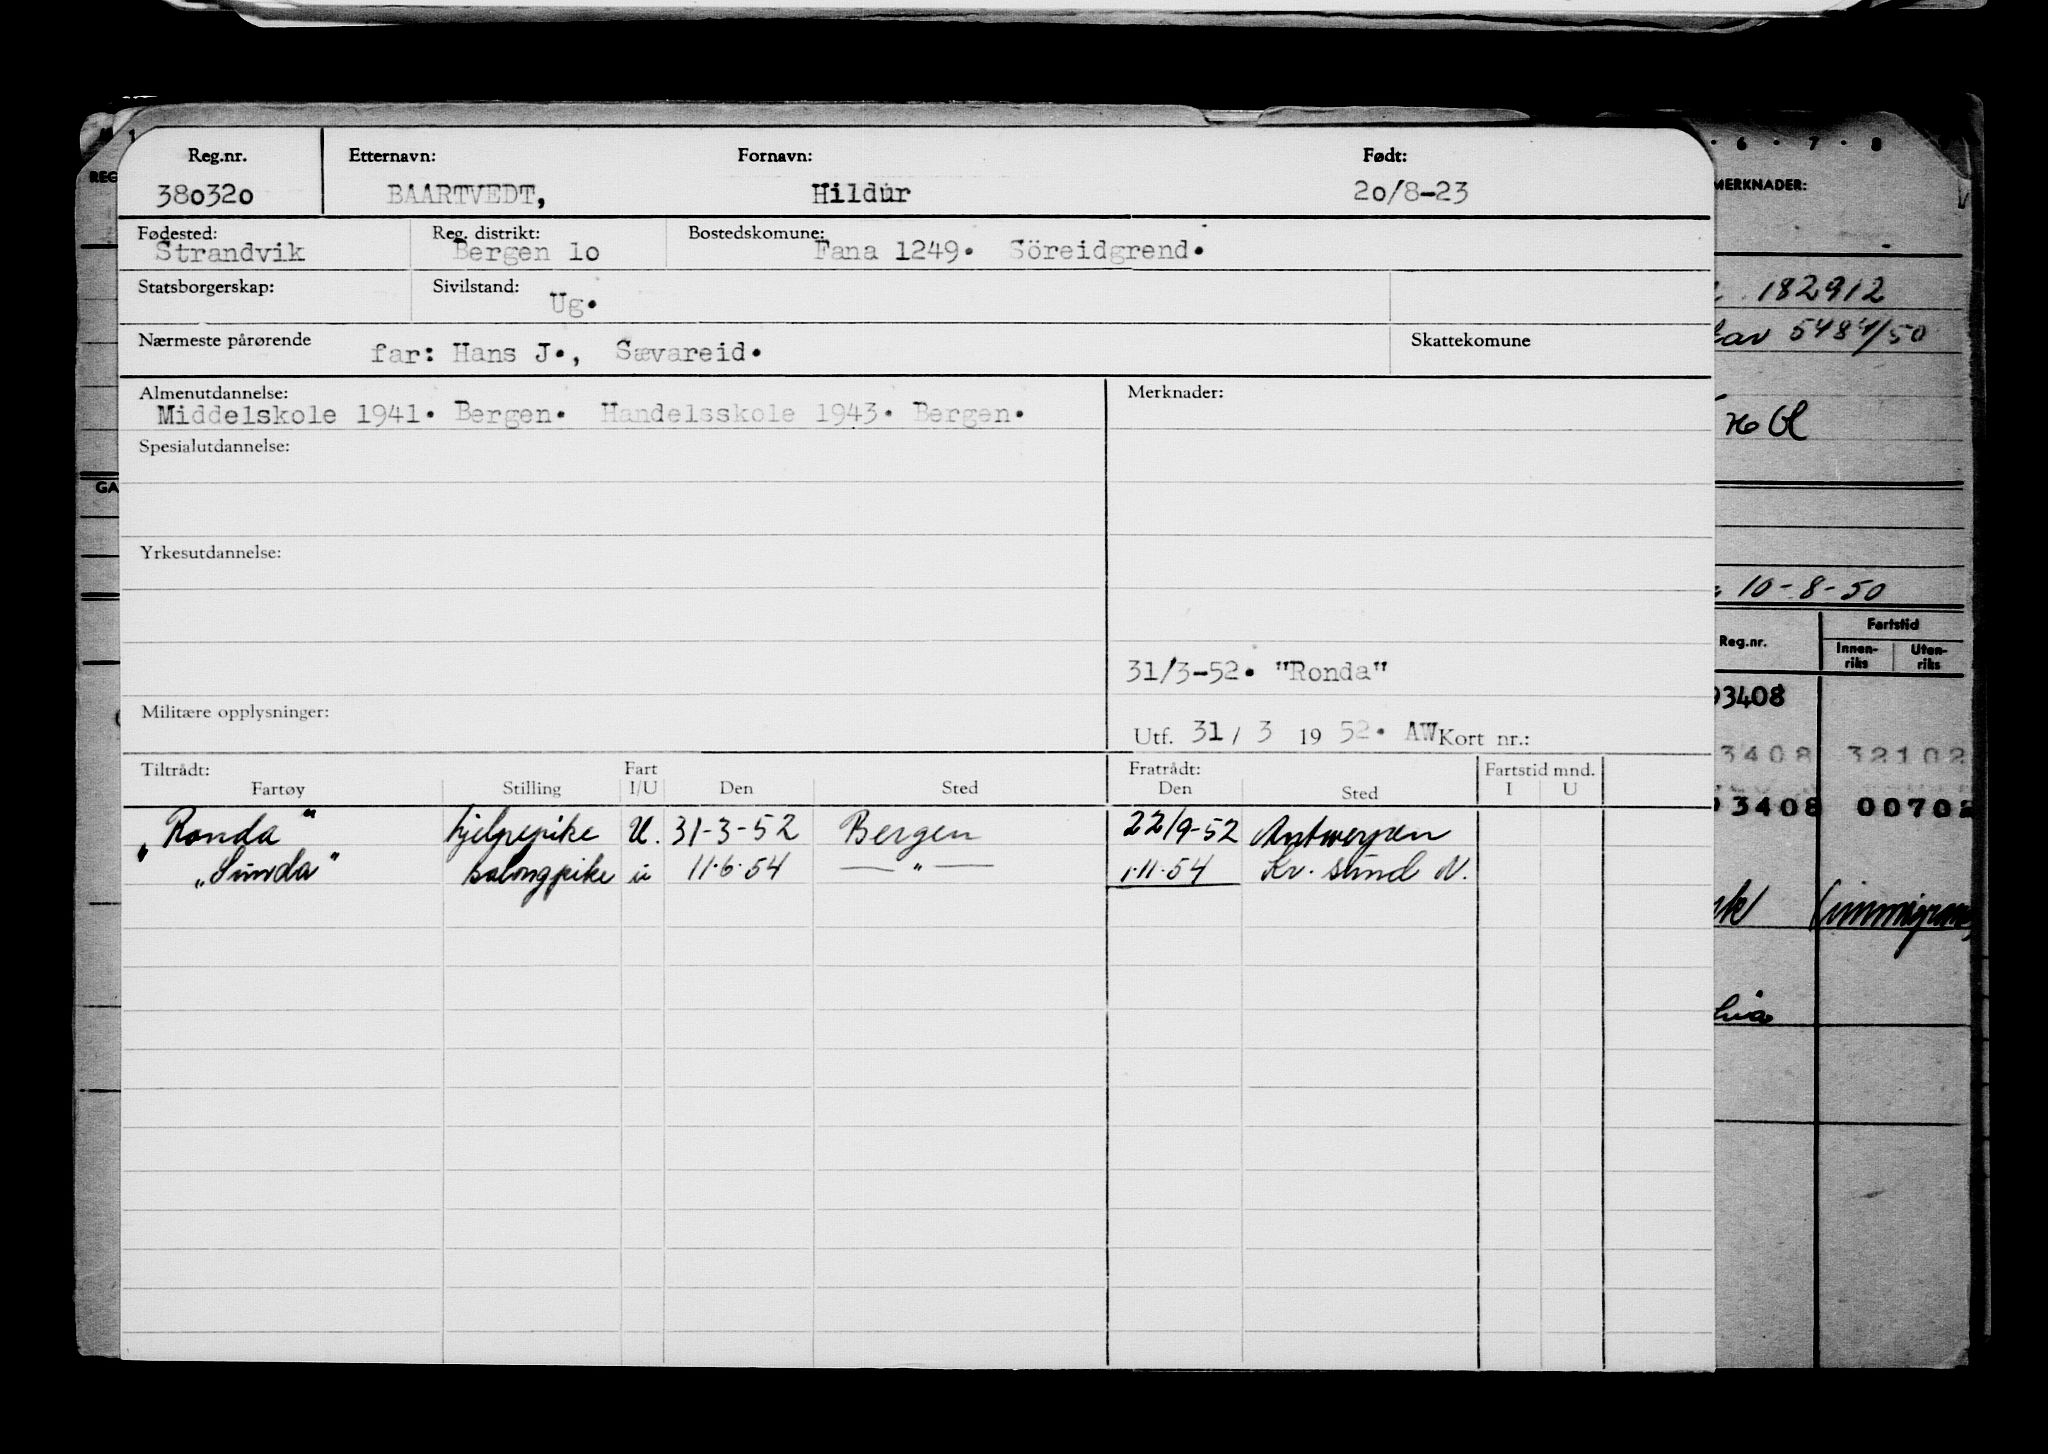 Reg.nr. Etternavn: Fornavn: Født:
380320 BAARTVEDT, Hildur 20/8-23
Fødested: Reg. distrikt: Bostedskomune:
Strandvik Bergen 10 Fana 1249. Söreidgrend.
Statsborgerskap: Sivilstand:
Ug.
Nærmeste pårørende far: Hans J., Sævareid. Skattekomune
Almenutdannelse: Merknader:
Middelskole 1941. Bergen. Handelsskole 1943. Bergen.
Spesialutdannelse:
Yrkesutdannelse:
31/3-52. "Ronda"
Militære opplysninger:
Utf. 31 / 3 19 52. AW Kort nr.:
Tiltrådt: Fart Fratrådt: Fartstid mnd.
Fartøy Stilling I/U Den Sted Den Sted I U
„Ronda" hjelpepike U. 31-3-52 Bergen 22/9-52 Antwerpen
„Sunda" salongpike u 11.6.54 —"— 1.11.54 Kr. sund N.
6 · 7 · 8
MERKNADER:
182912
5484/50
10-8-50
Reg.nr. Fartstid
Innen-riks Uten-riks
03408
3408 32102
3408 00702
REG
GA